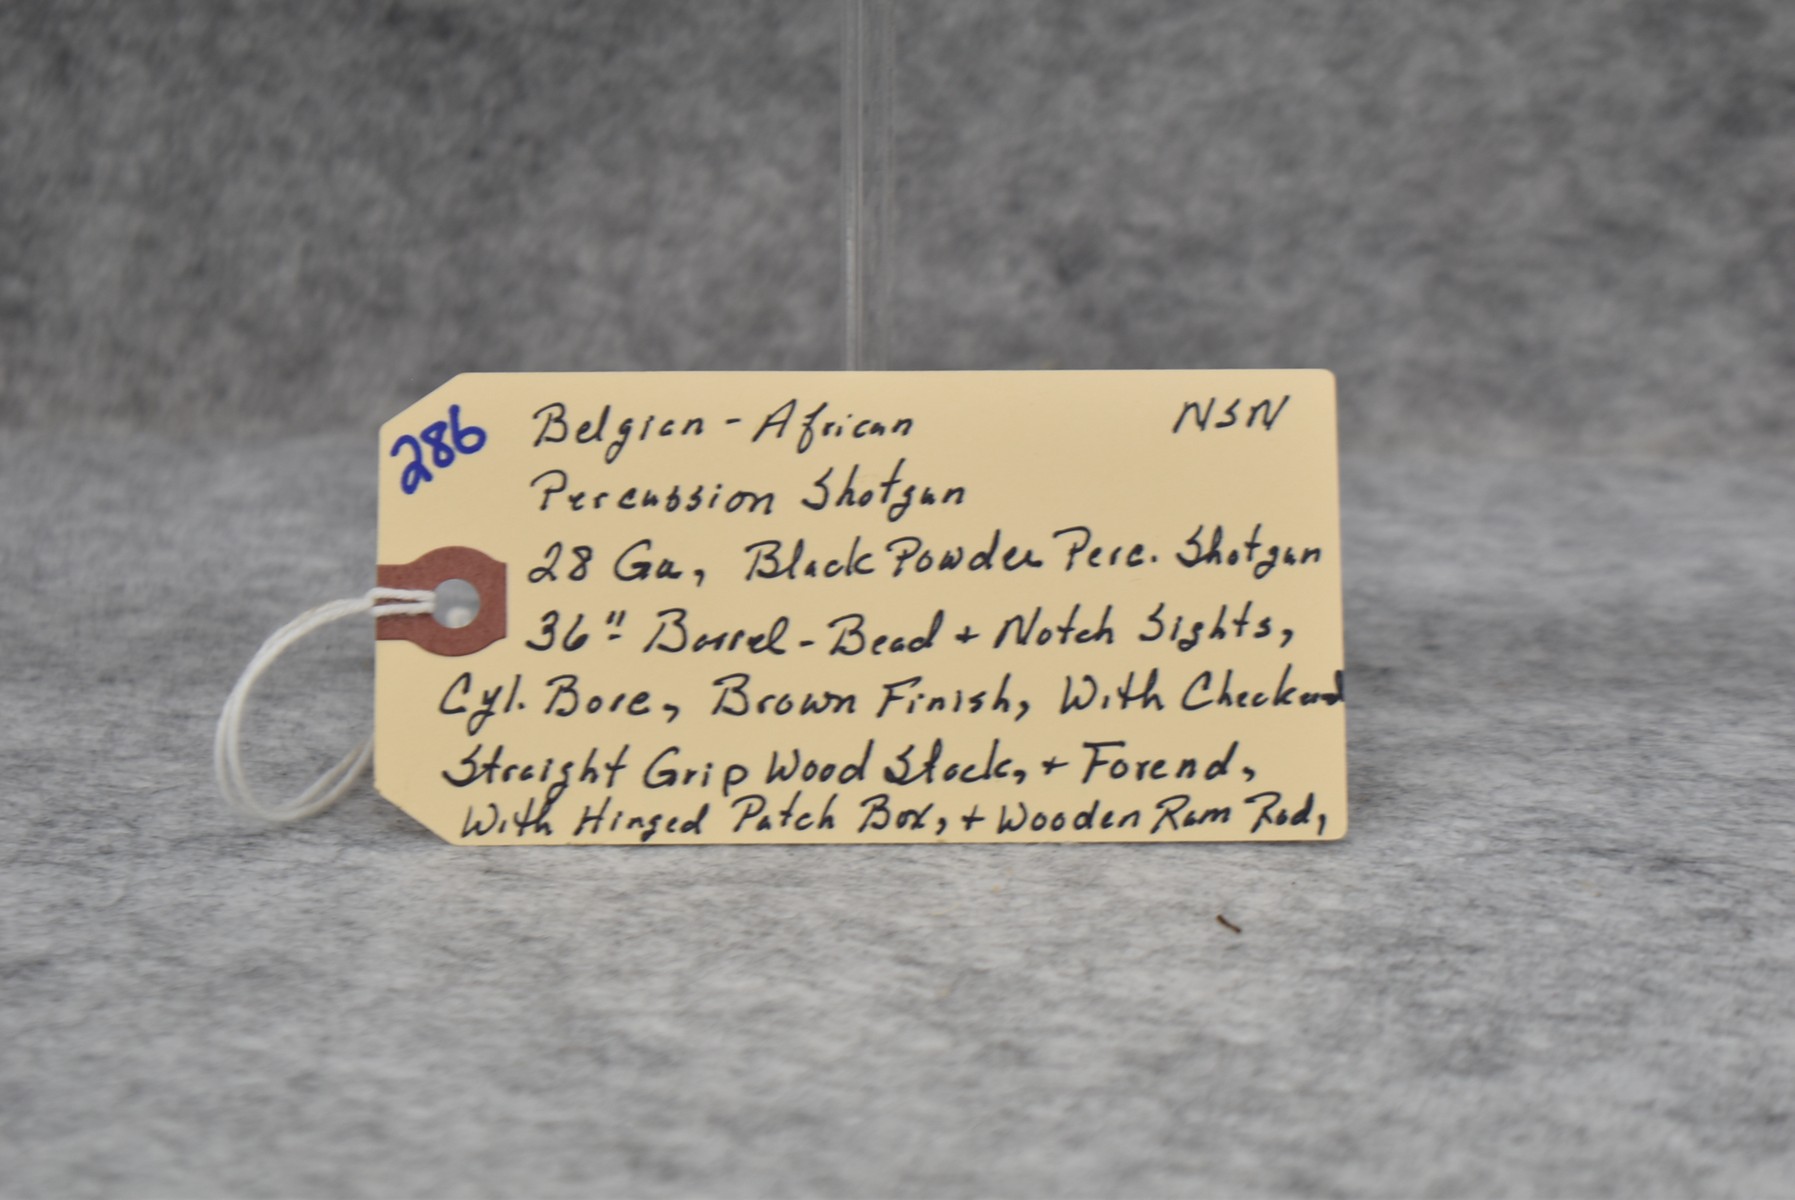 286
Belgian - African NSN
Percussion Shotgun
28 Ga, Black Powder Perc. Shotgun
36" Barrel - Bead + Notch Sights,
Cyl. Bore, Brown Finish, With Checkered
Straight Grip Wood Stock, + Forend,
With Hinged Patch Box, + Wooden Ram Rod,